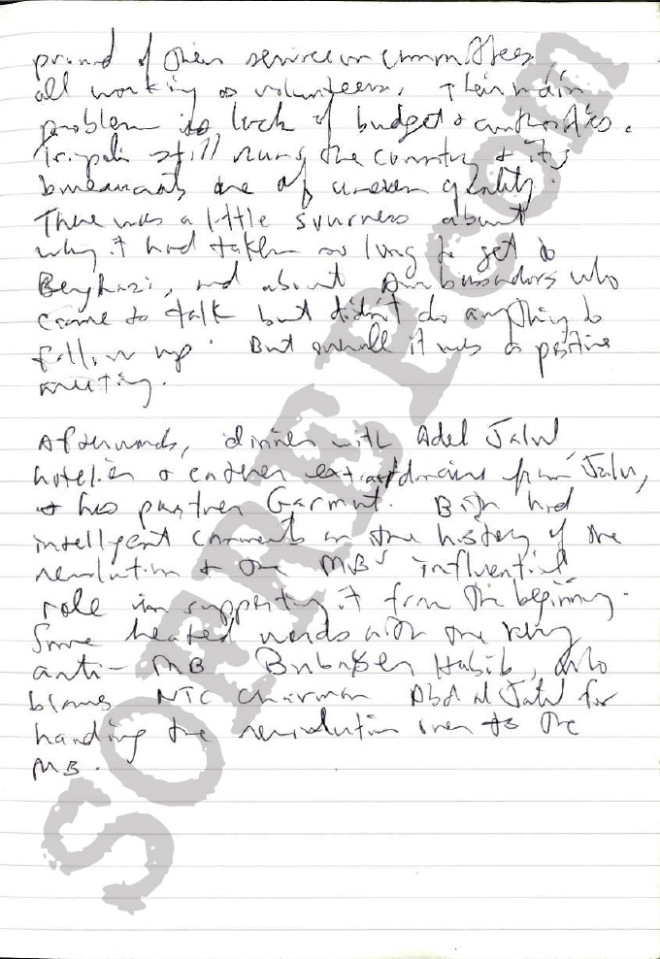 proud of their service on committees,
all working as volunteers. Their main
problem is lack of budget & authorities.
Tripoli still runs the country & its
bureaucrats are of uneven quality.
There was a little sourness about
why it had taken so long to get to
Benghazi, and about Ambassadors who
came to talk but didn't do anything to
follow up. But overall it was a positive
meeting.
Afterwards, dinner with Adel Jalul
hotelier & caterer from Jalu,
& his partner Garmut. Both had
intelligent comments on the history of the
revolution & the MB's influential
role in supporting it from the beginning.
Some heated words with the very
anti-MB Bubaker Habib, who
blames NTC Chairman Abd al Jalil for
handing the revolution over to the
MB.
SORREL.com